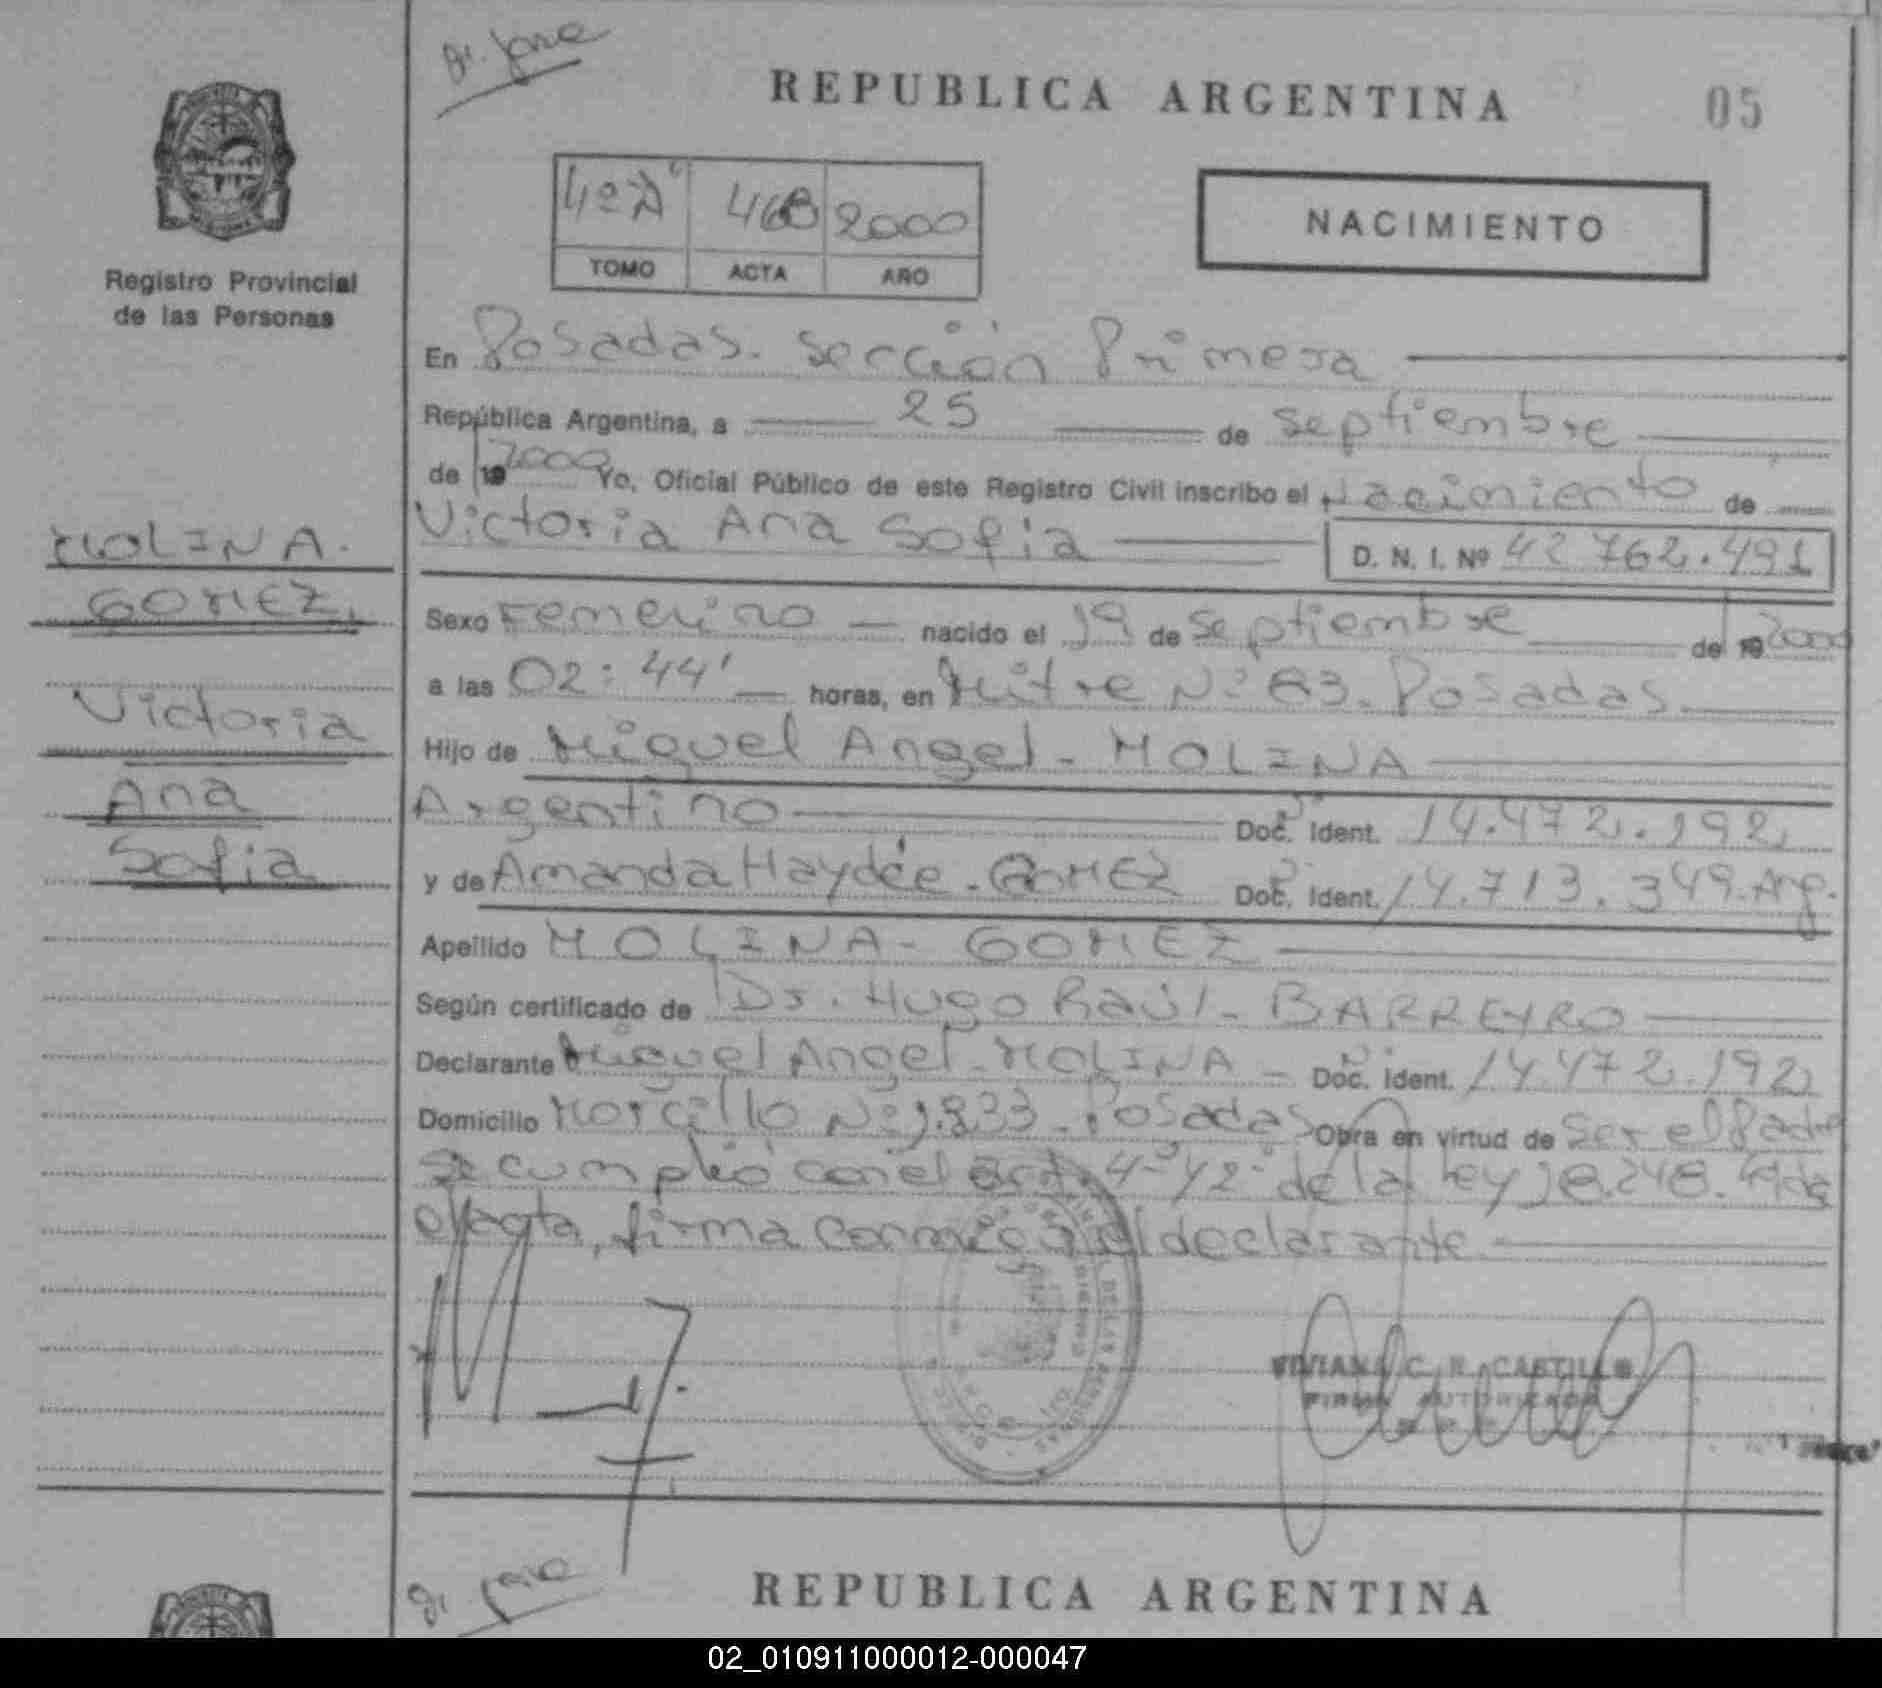 REPUBLICA ARGENTINA
05
Registro Provincial
de las Personas
42 "A" 468 2000
TOMO ACTA AÑO
NACIMIENTO
En Posadas. Sección Primera
República Argentina, a 25 de septiembre
de 19 2000 Yo, Oficial Público de este Registro Civil inscribo el Nacimiento de
Victoria Ana Sofia D. N. I. Nº 42 762.491
MOLINA
GOMEZ,
Victoria
Ana
Sofia
Sexo Femenino nacido el 19 de septiembre de 19 2000
a las 02:44' horas, en Mitre Nº 83. Posadas
Hijo de Miguel Angel - MOLINA
Argentino Doc. Ident. 14.472.192
y de Amanda Haydée - GOMEZ Doc. Ident. 14.713.349. Arg.
Apellido MOLINA - GOMEZ
Según certificado de Dr. Hugo Raúl - BARREYRO
Declarante Miguel Angel - MOLINA - Doc. Ident. 14.472.192
Domicilio Morcillo Nº 1.833 - Posadas Obra en virtud de ser el Padre
se cumplió con el art. 4º y 2º de la ley 18.248.
el acta, firma conmigo el declarante
VIVIANA C. R. CASTILLO
FIRMA AUTORIZADA
REPUBLICA ARGENTINA
02_010911000012-000047